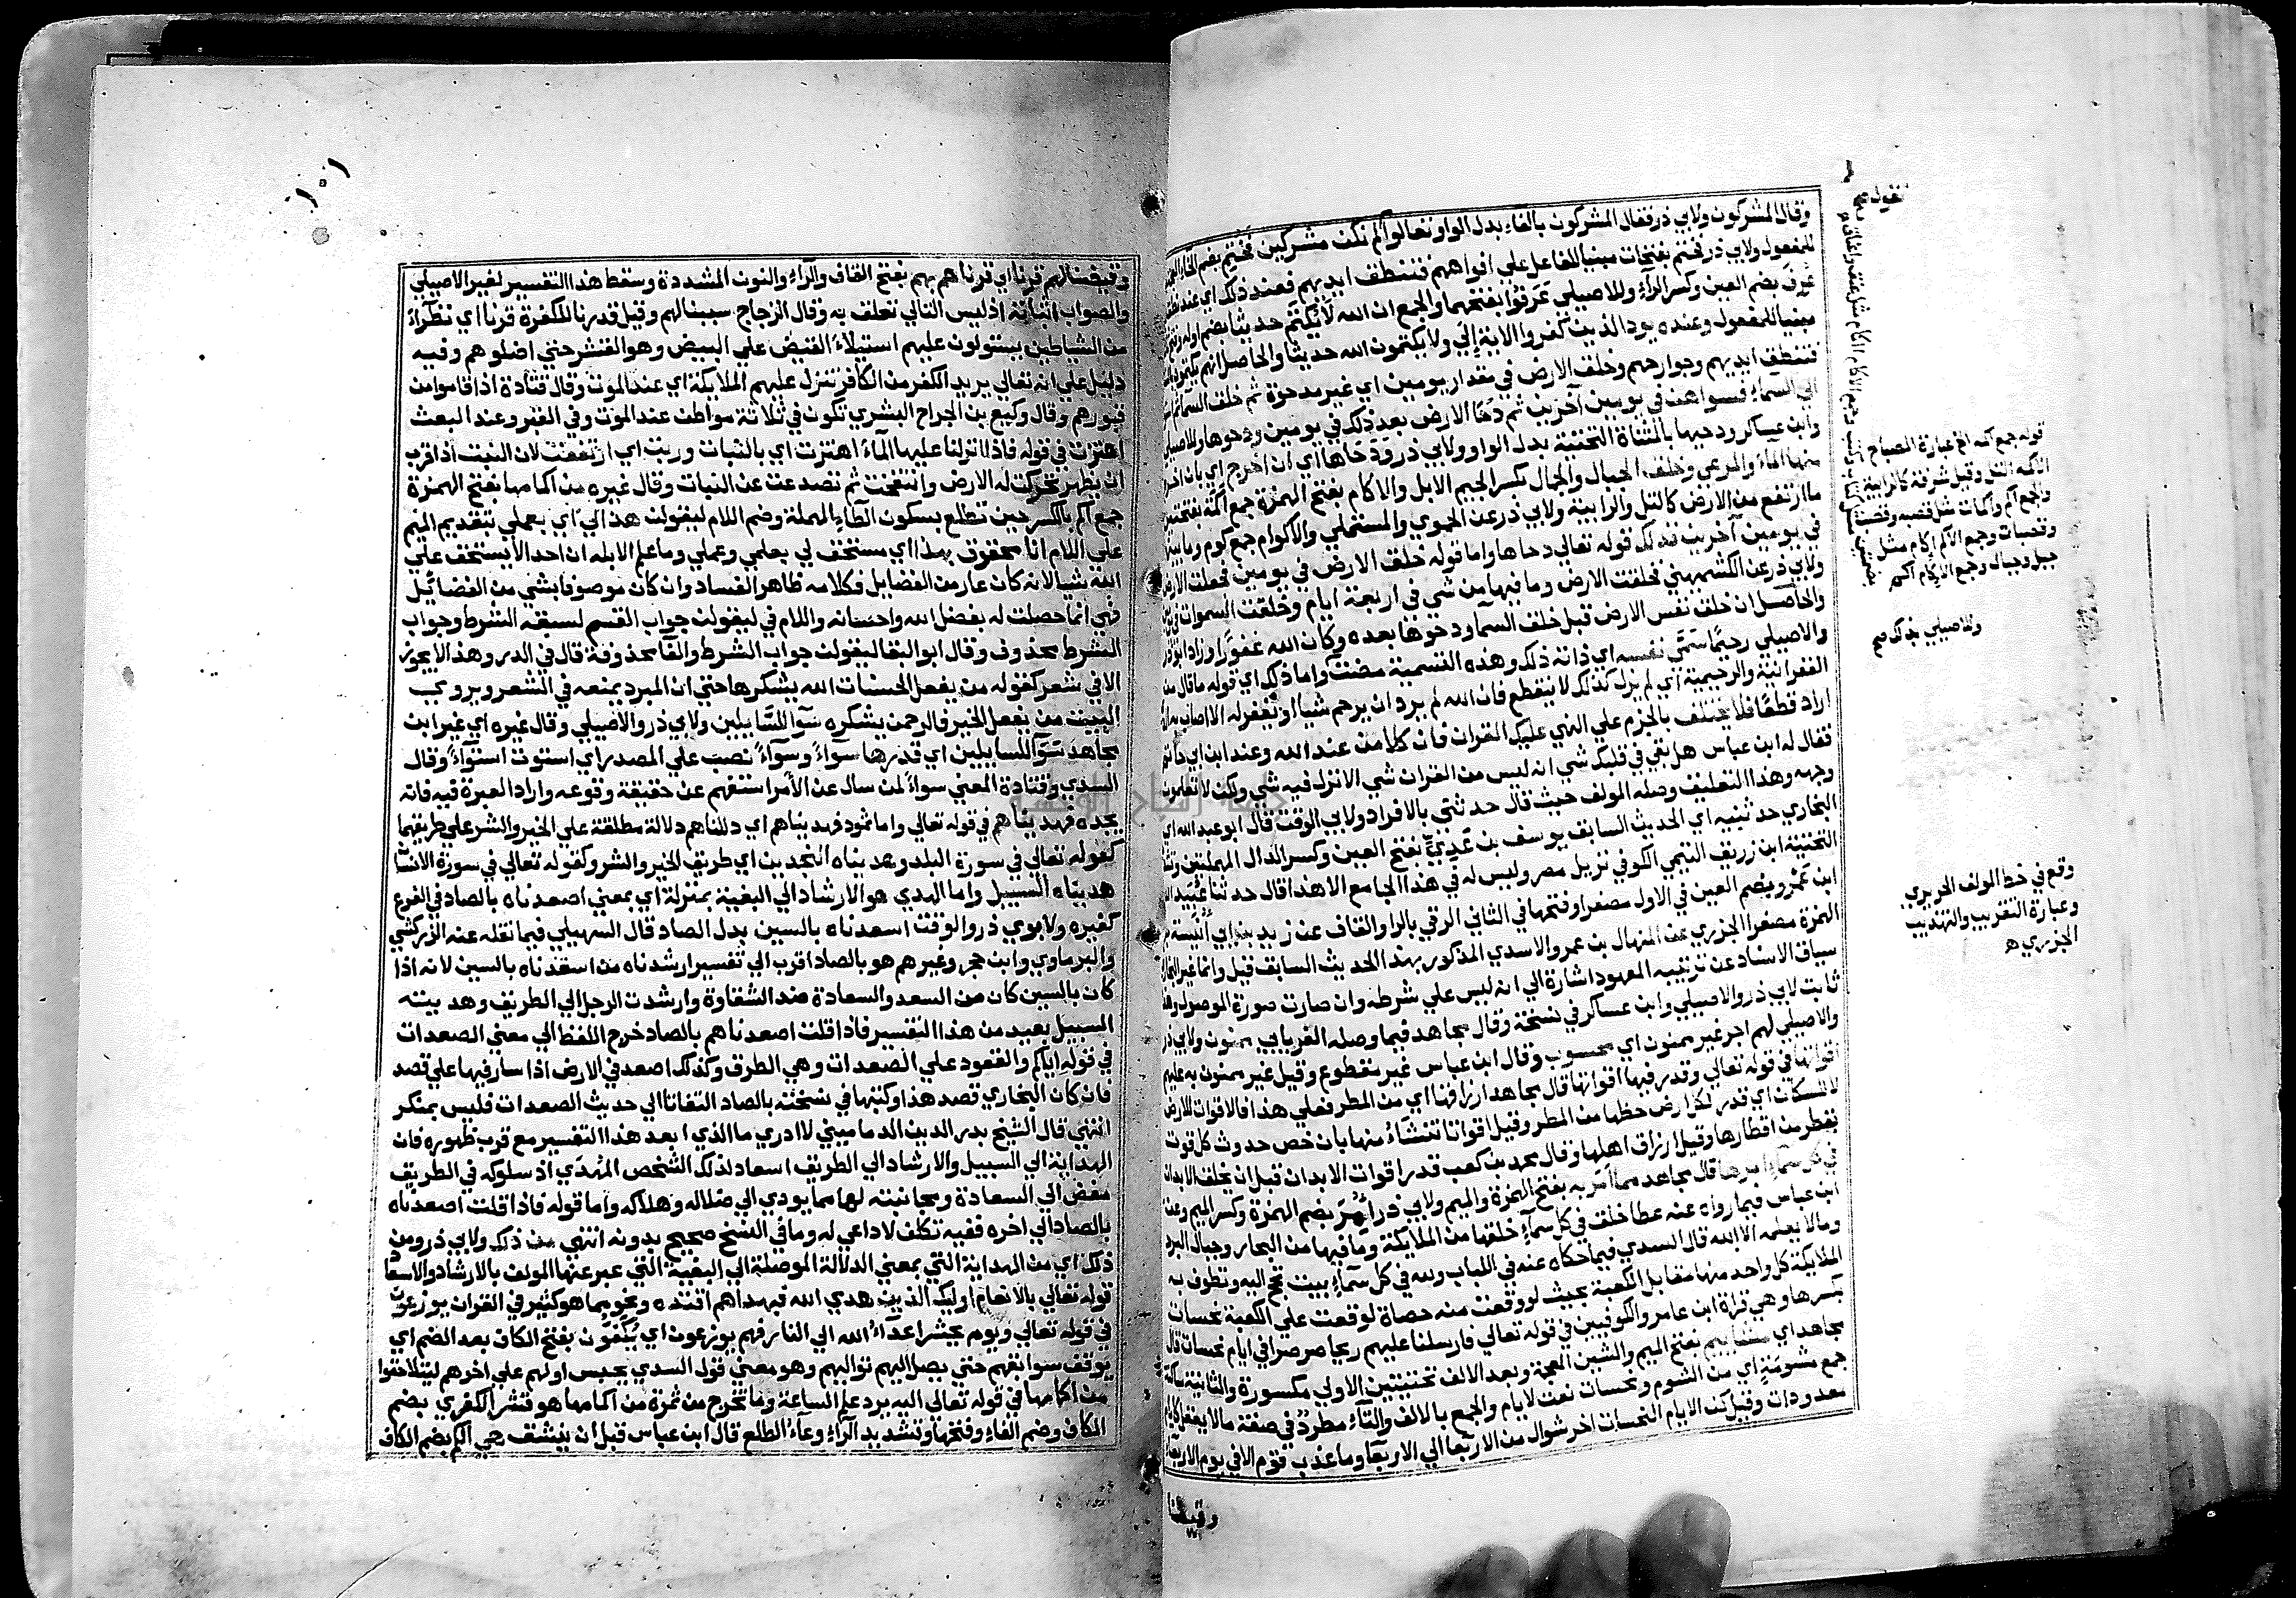 وقال المشركون ولابي ذر فقال المشركون بالفاء بدل الواو تعالوا الم نكن مشركين فختم بضم الخاء
للمفعول ولابي ذر فختم بفتحات مبنيا للفاعل علي افواههم فتنطق ايديهم فعند ذلك اي عند نطق
عُرِفَ بضم العين وكسر الرآء وللاصيلي عَرَفوا بفتحهما والجمع ان الله لا يُكتَم حديثا بضم اوله وفتح
مبنيا للمفعول وعنده يود الذين كفروا الاية الي ولا يكتمون الله حديثا والحاصل انهم يكتمون
فتنطق ايديهم وجوارحهم وخلق الارض في مقدار يومين اي غير مدحوة ثم خلق السماء
الي السماء فسواهن في يومين آخرين ثم دحا الارض بعد ذلك في يومين ودحوها وللاصيلي
وابن عساكر ودحيها بالمثناة التحتية بدل الواو ولابي ذر ودَحَاها اي ان اخرج اي بان اخرج
منها الماء والمرعي وخلق الجبال والجمال بكسر الجيم الابل والاكام بفتح الهمزة جمع اكمة بفتحتين
ما ارتفع من الارض كالتل والرابية ولابي ذر عن الحموي والمستملي والاكوام جمع كوم وما بينهما
في يومين آخرين فذلك قوله تعالي دحاها واما قوله خلق الارض في يومين فجعلت الارض
ولابي ذر عن الكشميهني فخلقت الارض وما فيها من شي في اربعة ايام وخلقت السموات في يومين
والحاصل ان خلق نفس الارض قبل خلق السما ودحوها بعده وكان الله غفورًا زاد ابو ذر
والاصيلي رحيمًا سَمّي نفسه اي ذاته ذلك وهذه التسمية مضت واما ذلك اي قوله ما قال من
الغفرانية والرحيمية اي لم يزل كذلك لا ينقطع فان الله لم يرد ان يرحم شيا او يغفر له الا اصاب به الذي
اراد قطعًا فلا يختلف بالجزم علي النهي عليك القران فان كلا من عند الله وعند ابن ابي حاتم
فقال له ابن عباس هل بقي في قلبك شي انه ليس من القران شي الا نزل فيه شي ولكن لا تعلمون
وجهه وهذا التعليق وصله المولف حيث قال حدثني بالافراد ولابي الوقت قال ابو عبد الله اي
البخاري حدثنيه اي الحديث السابق يوسف بن عَدِيّ بفتح العين وكسر الدال المهملتين وتشديد
التحتية ابن زريق التيمي الكوفي نزيل مصر وليس له في هذا الجامع الا هذا قال حدثنا عُبَيد الله
ابن عَمْرو بضم العين في الاول مصغرا وفتحها في الثاني الرقي بالرا والقاف عن زيد بن ابي اُنَيْسة بضم
الهمزة مصغرا الجزري عن المنهال بن عمرو الاسدي المذكور بهذا الحديث السابق قيل وانما غير البخاري
سياق الاسناد عن ترتيبه المعهود اشارة الي انه ليس علي شرطه وان صارت صورة الموصول وهذا
ثابت لابي ذر والاصيلي وابن عساكر في نسخة وقال مجاهد فيما وصله الفريابي ممنون ولابي ذر
والاصيلي لهم اجر غير ممنون اي محسوب وقال ابن عباس غير مقطوع وقيل غير ممنون به عليهم
اقواتها في قوله تعالي وقدر فيها اقواتها قال مجاهد ارزاقها اي من المطر فعلي هذا فالاقوات للارض
لا للسكان اي قدر لكل ارض حظها من المطر وقيل اقواتا تنشاء منها بان خص حدوث كل قوت
بقطر من اقطارها وقيل ارزاق اهلها وقال محمد بن كعب قدر اقوات الابدان قبل ان يخلق الابدان
في كل سماءٍ امرها قال مجاهد مما اَمَر به بفتح الهمزة والميم ولابي ذر اُمِرَ بضم الهمزة وكسر الميم وعن
ابن عباس فيما رواه عنه عطا خلق في كل سماءٍ خلقها من الملايكة وما فيها من البحار وجبال البرد
وما لا يعلمه الا الله قال السدي فيما حكاه عنه في اللباب ولله في كل سماءٍ بيت تحج اليه وتطوف به
الملايكة كل واحد منها مقابل الكعبة بحيث لو وقعت منه حصاة لوقعت علي الكعبة نحسات
بكسرها وهي قراة ابن عامر والكوفيين في قوله تعالي فارسلنا عليهم ريحا صرصرا في ايام نحسات قال
مجاهد اي مشاييم بفتح الميم والشين المعجمة وبعد الالف تحتيتين الاولي مكسورة والثانية ساكنة
جمع مشومَةٍ اي من الشوم ونحسات نعت لايام والجمع بالالف والتاء مطرد في صفة ما لا يعقل كايام
معدودات وقيل كنت الايام النحسات اخر شوال من الاربعا الي الاربعا وما عذب قوم الا في يوم الاربعاء
وقيضنا
قوله جمع اكمة الخ عبارة المصباح
الاكمة التل وقيل شرفة كالرابية
والجمع اكم واكمات مثل قصبة وقصب
وقصبات وجمع الاكم اكام مثل
جبل وجبال وجمع الاكام اكم
وللاصيلي بذلك صح
وقع في خط المولف الحريري
وعبارة التقريب والتهذيب
الجزري ه
١٠١
وقيضنا لهم قرنا اي قرناهم بهم بفتح القاف والرآء والنون المشددة وسقط هذا التفسير لغير الاصيلي
والصواب اثباته اذ ليس التالي تعلق به وقال الزجاج سببنا لهم وقيل قدرنا للكفرة قرنا اي نظرآء
من الشياطين يستولون عليهم استيلآء القيض علي البيض وهو القشر حتي اضلوهم وفيه
دليل علي انه تعالي يريد الكفر من الكافر تتنزل عليهم الملايكة اي عند الموت وقال قتادة اذا قاموا من
قبورهم وقال وكيع بن الجراح البشري تكون في ثلاثة مواطن عند الموت وفي القبر وعند البعث
اهتزت في قوله فاذا انزلنا عليها الماء اهتزت اي بالنبات وربت اي ارتفعت لان النبت اذا قرب
ان يظهر تحركت له الارض وانتفخت ثم تصدعت عن النبات وقال غيره من اكمامها بفتح الهمزة
جمع كم بالكسر حين تطلع بسكون الطاء المهملة وضم اللام ليقولن هذا لي اي بعملي بتقديم الميم
علي اللام انا محقوق بهذا اي مستحق لي بعلمي وعملي وما علم الابله ان احدا لا يستحق علي
الله شيا لانه كان عار من الفضايل فكلامه ظاهر الفساد وان كان موصوفا بشي من الفضائل
فهي انما حصلت له بفضل الله واحسانه واللام في ليقولن جواب القسم لسبقه الشرط وجواب
الشرط محذوف وقال ابو البقا ليقولن جواب الشرط والفا محذوفة قال في الدر وهذا لا يجوز
الا في شعر كقوله من يفعل الحسنات الله يشكرها حتي ان المبرد يمنعه في الشعر ويروي
البيت من يفعل الخير فالرحمن يشكره سوآ للسَّايلين ولابي ذر والاصيلي وقال غيره اي غير ابن
مجاهد سَوَآ للسايلين اي قدرها سوآءً وسوآءً نصب علي المصدر اي استوت استوآءً وقال
السدي وقتادة المعني سوآءً لمن سال عن الامر استفهم عن حقيقة وقوعه واراد العبرة فيه فانه
يجده فهديناهم في قوله تعالي واما ثمود فهديناهم اي دللناهم دلالة مطلقة علي الخير والشر علي طريقهما
كقوله تعالي في سورة البلد وهديناه النجدين اي طريق الخير والشر وكقوله تعالي في سورة الانسان
هديناه السبيل واما الهدي هو الارشاد الي البغية بمنزلة اي بمعني اصعدناه بالصاد في الفرع
كغيره ولابوي ذر والوقت اسعدناه بالسين بدل الصاد قال السهيلي فيما نقله عنه الزركشي
والبرماوي وابن حجر وغيرهم هو بالصاد اقرب الي تفسير ارشدناه من اسعدناه بالسين لانه اذا
كان بالسين كان من السعد والسعادة ضد الشقاوة وارشدت الرجل الي الطريق وهديته
السبيل بعيد من هذا التفسير فاذا قلت اصعدناهم بالصاد خرج اللفظ الي معني الصعدات
في قوله اياكم والقعود علي الصعدات وهي الطرق وكذلك اصعد في الارض اذا سار فيها علي قصد
فان كان البخاري قصد هذا وكتبها في نسخته بالصاد التفاتا الي حديث الصعدات فليس بمنكر
انتهي قال الشيخ بدر الدين الدماميني لا ادري ما الذي ابعد هذا التفسير مع قرب ظهوره فان
الهداية الي السبيل والارشاد الي الطريق اسعاد لذلك الشخص المُهدَي اذ سلوكه في الطريق
مفض الي السعادة ومجانبته لها مما يودي الي ضلاله وهلاكه واما قوله فاذا قلت اصعدناه
بالصاد الي اخره ففيه تكلف لا داعي له وما في النسخ صحيح بدونه انتهي من ذلك ولابي ذر ومن
ذلك اي من الهداية التي بمعني الدلالة الموصلة الي البغية التي عبر عنها المولف بالارشاد والاسعاد
قوله تعالي بالانعام اوليك الذين هدي الله فبهداهم اقتده ونحوه مما هو كثير في القران يوزعون
في قوله تعالي ويوم يحشر اعدآءُ الله الي النار فهم يوزعون اي يُكَفّون بفتح الكاف بعد الضم اي
يوقف سوابقهم حتي يصل اليهم تواليهم وهو معني قول السدي يحبس اولهم علي اخرهم ليتلاحقوا
من اكمامها في قوله تعالي اليه يرد علم الساعة وما تخرج من ثمرة من اكمامها هو قشر الكفري بضم
الكاف وضم الفاء وفتحها وتشديد الرآء وعآءُ الطلع قال ابن عباس قبل ان ينشق هي الكم بضم الكاف